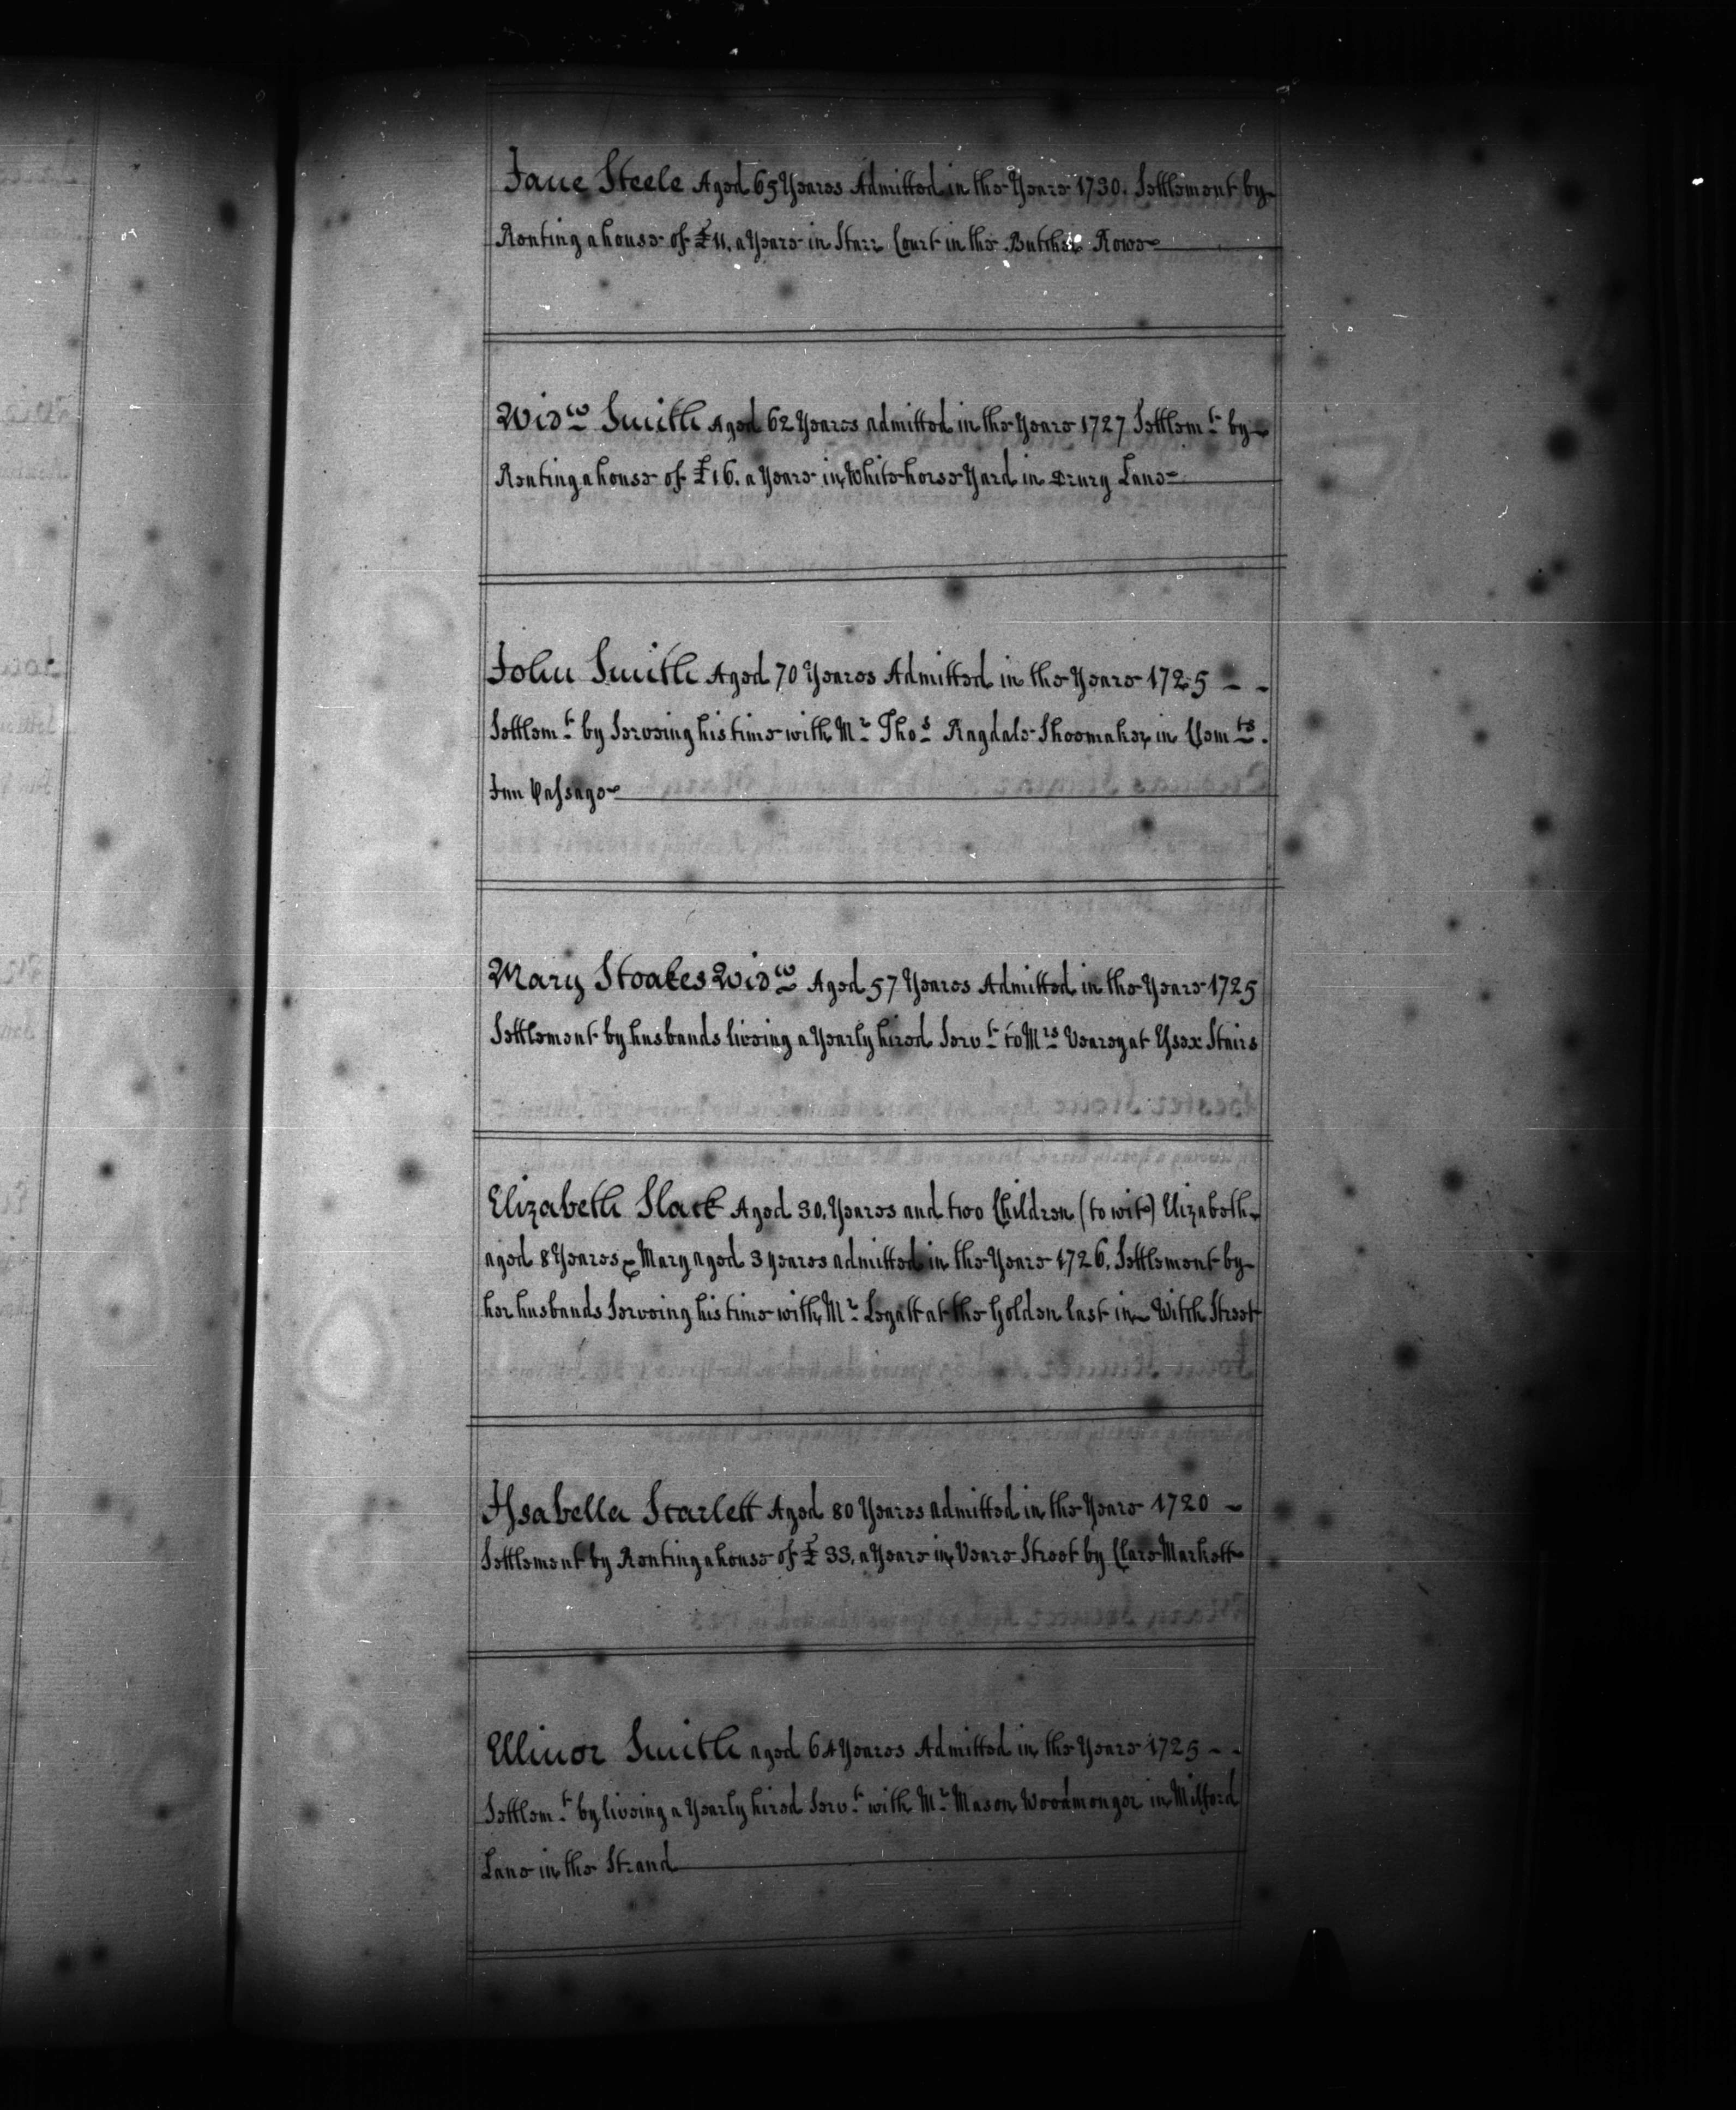 Jane Steele Aged 65 Yeares Admitted in the Yeare 1730. Settlement by
Renting a house of £11. a Yeare in Starr Court in the Butcher Rowe
Widw Smith Aged 62 Yeares admitted in the Yeare 1727 Settlemt by
Renting a house of £16. a Yeare in White horse Yard in Drury Lane
John Smith Aged 70 Yeares Admitted in the Yeare 1725 - -
Settlemt by Serveing his time with Mr Thos Ragdale Shoomaker in Clemts.
Inn Passage
Mary Stoakes Widw Aged 57 Yeares Admitted in the Yeare 1725
Settlement by husbands liveing a Yearly hired Servt to Mrs Verey at Essex Stairs
Elizabeth Slack Aged 30. Yeares and two Children (to wit) Elizabeth
aged 8 Yeares & Mary aged 3 yeares admitted in the Yeare 1726. Settlement by
her husbands Serveing his time with Mr Legatt at the Golden last in Witch Street
Issabella Scarlett Aged 80 Yeares admitted in the Yeare 1720
Settlement by Renting a house of £33. a Yeare in Veare Street by Clare Markett
Ellinor Smith aged 64 Yeares Admitted in the Yeare 1725 - -
Settlemt by liveing a Yearly hired Servt with Mr Mason Woodmonger in Milford
Lane in the Strand